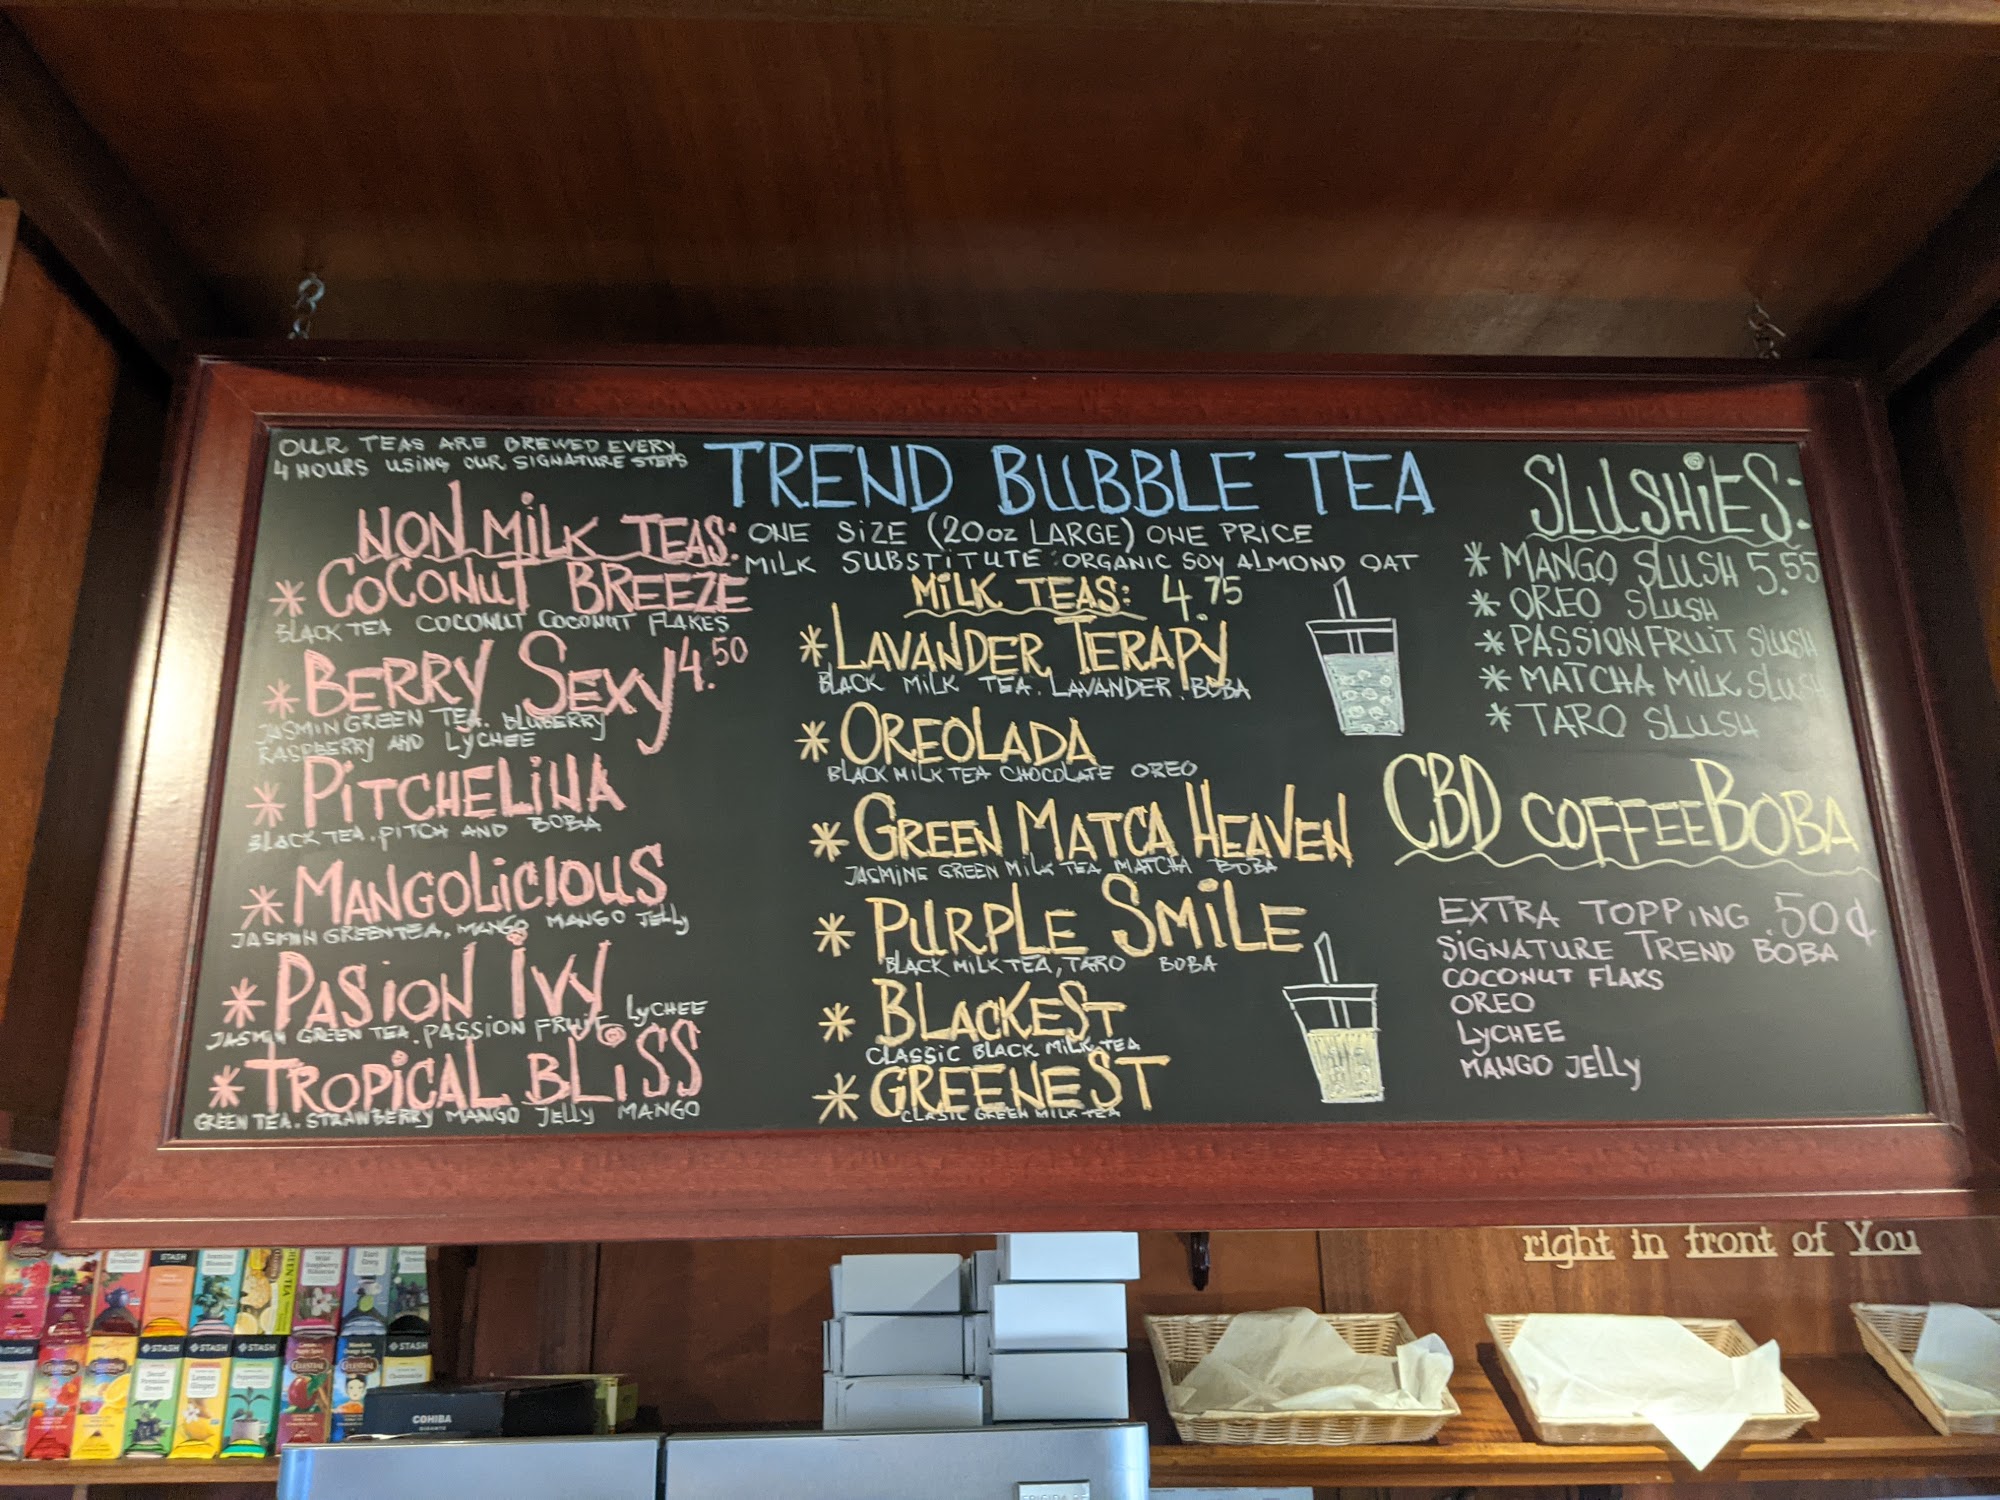 OUR TEAS ARE BREWED EVERY
4 HOURS USING OUR SIGNATURE STEPS
NON MILK TEAS:
* COCONUT BREEZE
BLACK TEA COCONUT COCONUT FLAKES
* BERRY SEXY 4.50
JASMIN GREEN TEA. BLUBERRY
RASPBERRY AND LYCHEE
* PITCHELINA
BLACK TEA. PITCH AND BOBA
* MANGOLICIOUS
JASMIN GREEN TEA, MANGO MANGO JELLY
* PASION IVY
JASMIN GREEN TEA. PASSION FRUIT. LYCHEE
* TROPICAL BLISS
GREEN TEA. STRAWBERRY MANGO JELLY MANGO
TREND BUBBLE TEA
ONE SIZE (20oz LARGE) ONE PRICE
MILK SUBSTITUTE: ORGANIC SOY ALMOND OAT
MILK TEAS: 4.75
* LAVANDER TERAPY
BLACK MILK TEA. LAVANDER. BOBA
* OREOLADA
BLACK MILK TEA CHOCOLATE OREO
* GREEN MATCA HEAVEN
JASMINE GREEN MILK TEA MATCHA BOBA
* PURPLE SMILE
BLACK MILK TEA, TARO BOBA
* BLACKEST
CLASSIC BLACK MILK TEA
* GREENEST
CLASIC GREEN MILK TEA
SLUSHIES:
* MANGO SLUSH 5.55
* OREO SLUSH
* PASSION FRUIT SLUSH
* MATCHA MILK SLUSH
* TARO SLUSH
CBD COFFEE BOBA
EXTRA TOPPING .50¢
SIGNATURE TREND BOBA
COCONUT FLAKS
OREO
LYCHEE
MANGO JELLY
right in front of You
STASH
STASH
STASH
STASH
STASH
GREEN TEA
COHIBA